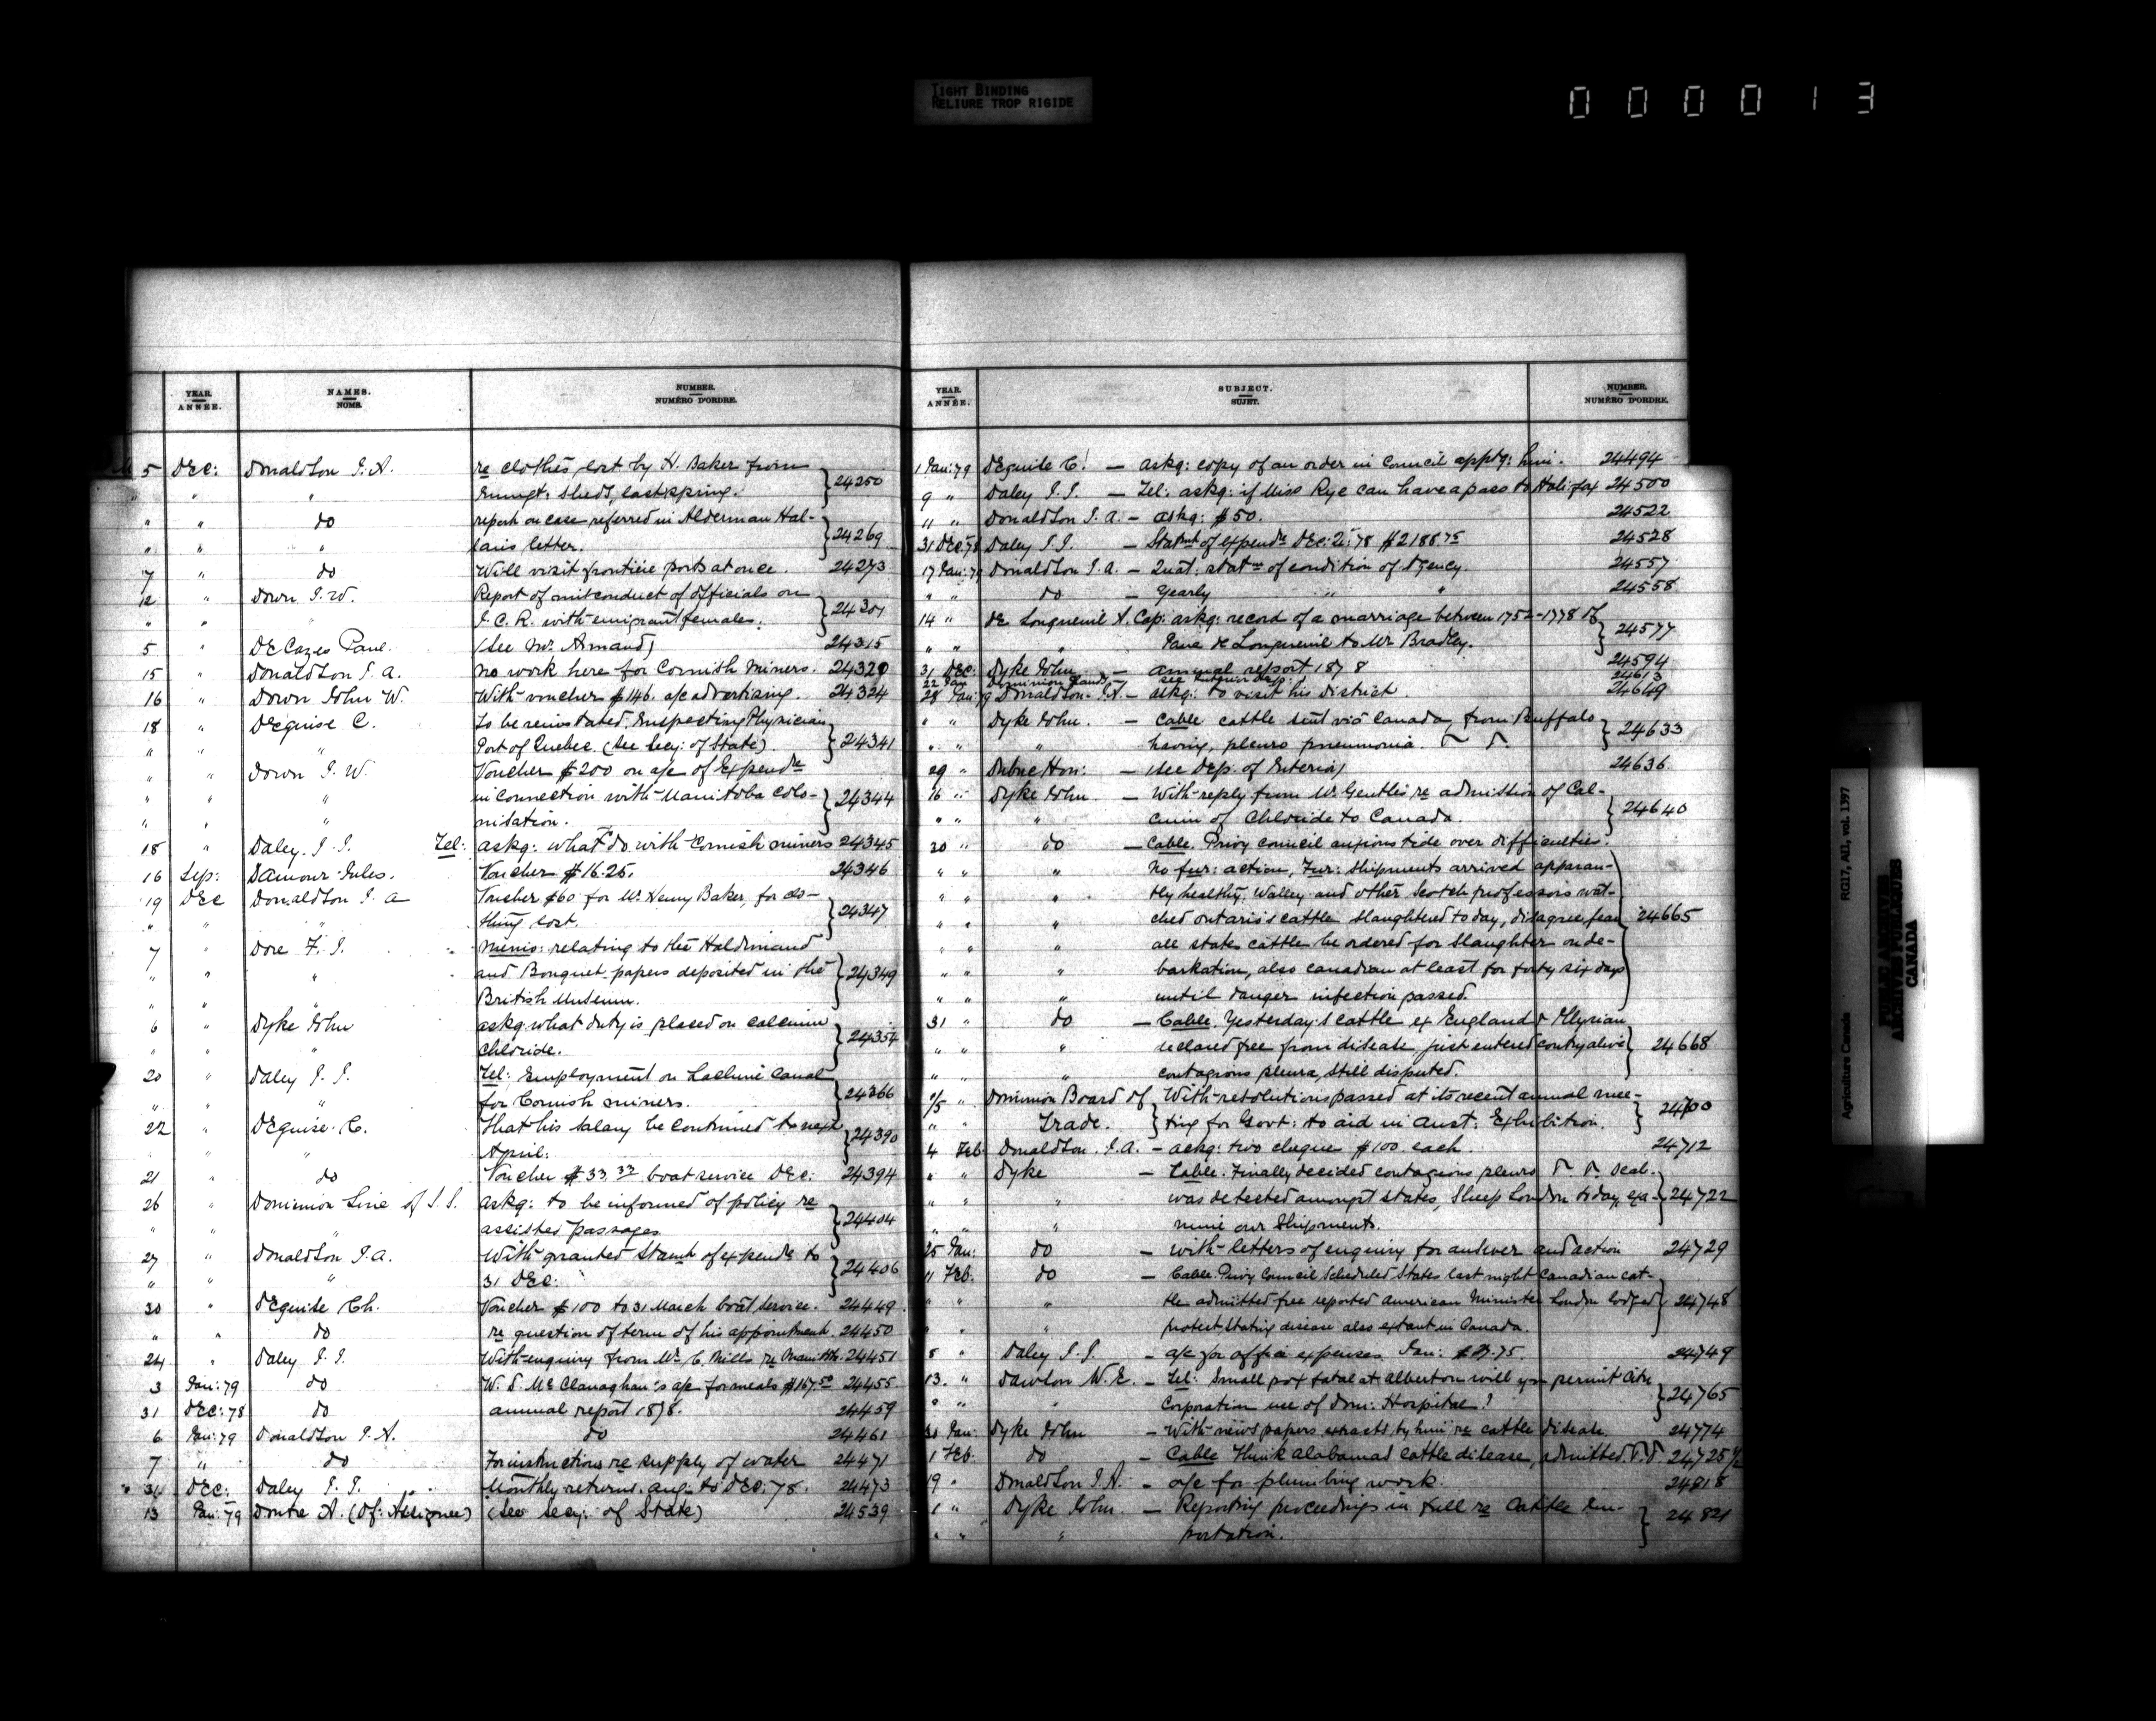 TIGHT BINDING
RELIURE TROP RIGIDE
000013
YEAR. ANNÉE.
NAMES. NOMS.
NUMBER. NUMÉRO D'ORDRE.
5 Dec: Donaldson J.A. re clothes lost by H. Baker from
" " " Emmgt: sheds, last spring. } 24250
" " do report on case referred in Alderman Hal-
" " " lam's letter. } 24269
7 " do Will visit frontiere ports at once. 24273
12 " Down J.W. Report of misconduct of officials on
" " " I.C.R. with emigrant females. } 24301
5 " De Cazes Paul. (See Mr. Armand) 24315
15 " Donaldson J.A. No work here for Cornish Miners. 24320
16 " Down John W. With voucher $146. a/c advertising. 24324
18 " DeGuise C. To be reinstated, Inspecting Physician
" " " Port of Quebec. (See Secy: of State) } 24341
" " Down J.W. Voucher $200 on a/c of Expendre
" " " in connection with Manitoba colo-
" " " nisation. } 24344
18 " Daley J.J. Tel: askg: what do with Cornish miners 24345
16 Sep: Damour Jules. Voucher $16.25. 24346
19 Dec Donaldson J.A Voucher $60 for Mr Henry Baker, for clo-
" " thing lost. } 24347
7 " Dore F.J. Mems: relating to the Haldimand
" " " and Bouquet papers deposited in the
" " " British Museum. } 24349
6 " Dyke John askg what duty is placed on calcium
" " " chloride. } 24354
20 " Daley J.J. Tel: Employment on Lachine Canal
" " " for Cornish miners. } 24366
22 " DeGuise C. That his salary be continued to next
" " " April. } 24390
21 " do Voucher $33.33 boat service Dec: 24394
26 " Dominion Line of S.S. askg: to be informed of policy re
" " " assisted passages } 24404
27 " Donaldson J.A. With granted Stamt of expendre to
" " " 31 Dec: } 24406
30 " DeGuise Ch. Voucher $100 to 31 March boat service. 24449
" " do re question of term of his appointment. 24450
24 " Daley J.J. With enquiry from Mr C. Mills re Manitba. 24451
3 Jan: 79 do W.S. McClanaghan's a/c for meals $167.50 24455
31 Dec: 78 do annual report 1878. 24459
6 Jan: 79 Donaldson J.A. do 24461
7 " do For instructions re supply of water 24471
31 Dec: Daley J.J. Monthly returns. Aug: to Dec: 78. 24473
13 Jan: 79 Doutre A. (Of: Assignee) (See Secy: of State) 24539
YEAR. ANNÉE.
SUBJECT. SUJET.
NUMBER. NUMÉRO D'ORDRE.
1 Jan: 79 DeGuise C. — askg: copy of an order in Council apptg: him. 24494
9 " Daley J.J. — Tel: askg: if Miss Rye can have a pass to Halifax 24500
11 " Donaldson J.A. — askg: $50. 24522
31 Dec: 78 Daley J.J. — Statmt of expendre Dec: Qr: 78 $2188.75 24528
17 Jan: 79 Donaldson J.A. — Quat: statmt of condition of Agency. 24557
" " do — Yearly " " 24558
14 " De Longueuil A. Cap: askg: record of a marriage between 1752-1778 of
" " " de Longueuil to Mr Bradley. } 24577
31 Dec: Dyke John — Annual report 1878 24594
22 Jan Dominion Lands — see Interior Dep: 24613
28 Jan: 79 Donaldson J.A. — askg: to visit his district. 24649
" " Dyke John. — Cable cattle sent via Canada from Buffalo
" " " having pleuro pneumonia. } 24633
29 " Dubuc Hon: — (see Dep. of Interior) 24636
16 " Dyke John — With reply from Mr Gentles re admission of Cal-
" " " cium of Chloride to Canada. } 24640
30 " do — Cable. Privy council anxious tide over difficulties.
" " " No fur: action, Fur: Shipments arrived apparan-
" " " tly healthy, Walley and other Scotch professors wat-
" " " ched ontario's cattle slaughtered today, disagree, fear
" " " all state cattle be ordered for slaughter on de-
" " " barkation, also canadian at least for forty six days
" " " until danger infection passed. } 24665
31 " do — Cable. Yesterday's cattle ex England & Illyrian
" " " declared free from disease, just entered contry alive
" " " contagious pleura, still disputed. } 24668
" Dominion Board of With resolutions passed at its recent annual mee-
" " Trade. ting for Govt: to aid in Aust: Exhibition. } 24700
4 Feb. Donaldson J.A. — askg: two cheque $100 each. 24712
" " Dyke — Cable. Finally decided contagious pleuro P. P. Scab.
" " " was detected amongst states, Sheep London today, exa-
" " " mine our Shipments. } 24722
25 Jan: do — with letters of enquiry for answer and action 24729
11 Feb. do — Cable. Privy Council Scheduled States last night Canadian cat-
" " " tle admitted free reported American Minister London lodged
" " " protest stating disease also extant in Canada. } 24748
8 " Daley J.J. — a/c for office expenses Jan: $27.75. 24749
13. " Dawson W.E. — Tel: Small pox fatal at Alberton will you permit City
" " Corporation use of Dom: Hospital? } 24765
30 Jan: Dyke John — With news papers extracts by him re cattle disease. 24774
1 Feb. do — Cable Think Alabamas cattle disease, admitted P.P. 24725½
19 " Donaldson J.A. — a/c for plumbing work. 24818
1 " Dyke John — Reporting proceedings in full re Cattle Im-
" " " portation. } 24821
Agriculture Canada RG17, AII, vol. 1397
PUBLIC ARCHIVES
ARCHIVES PUBLIQUES
CANADA